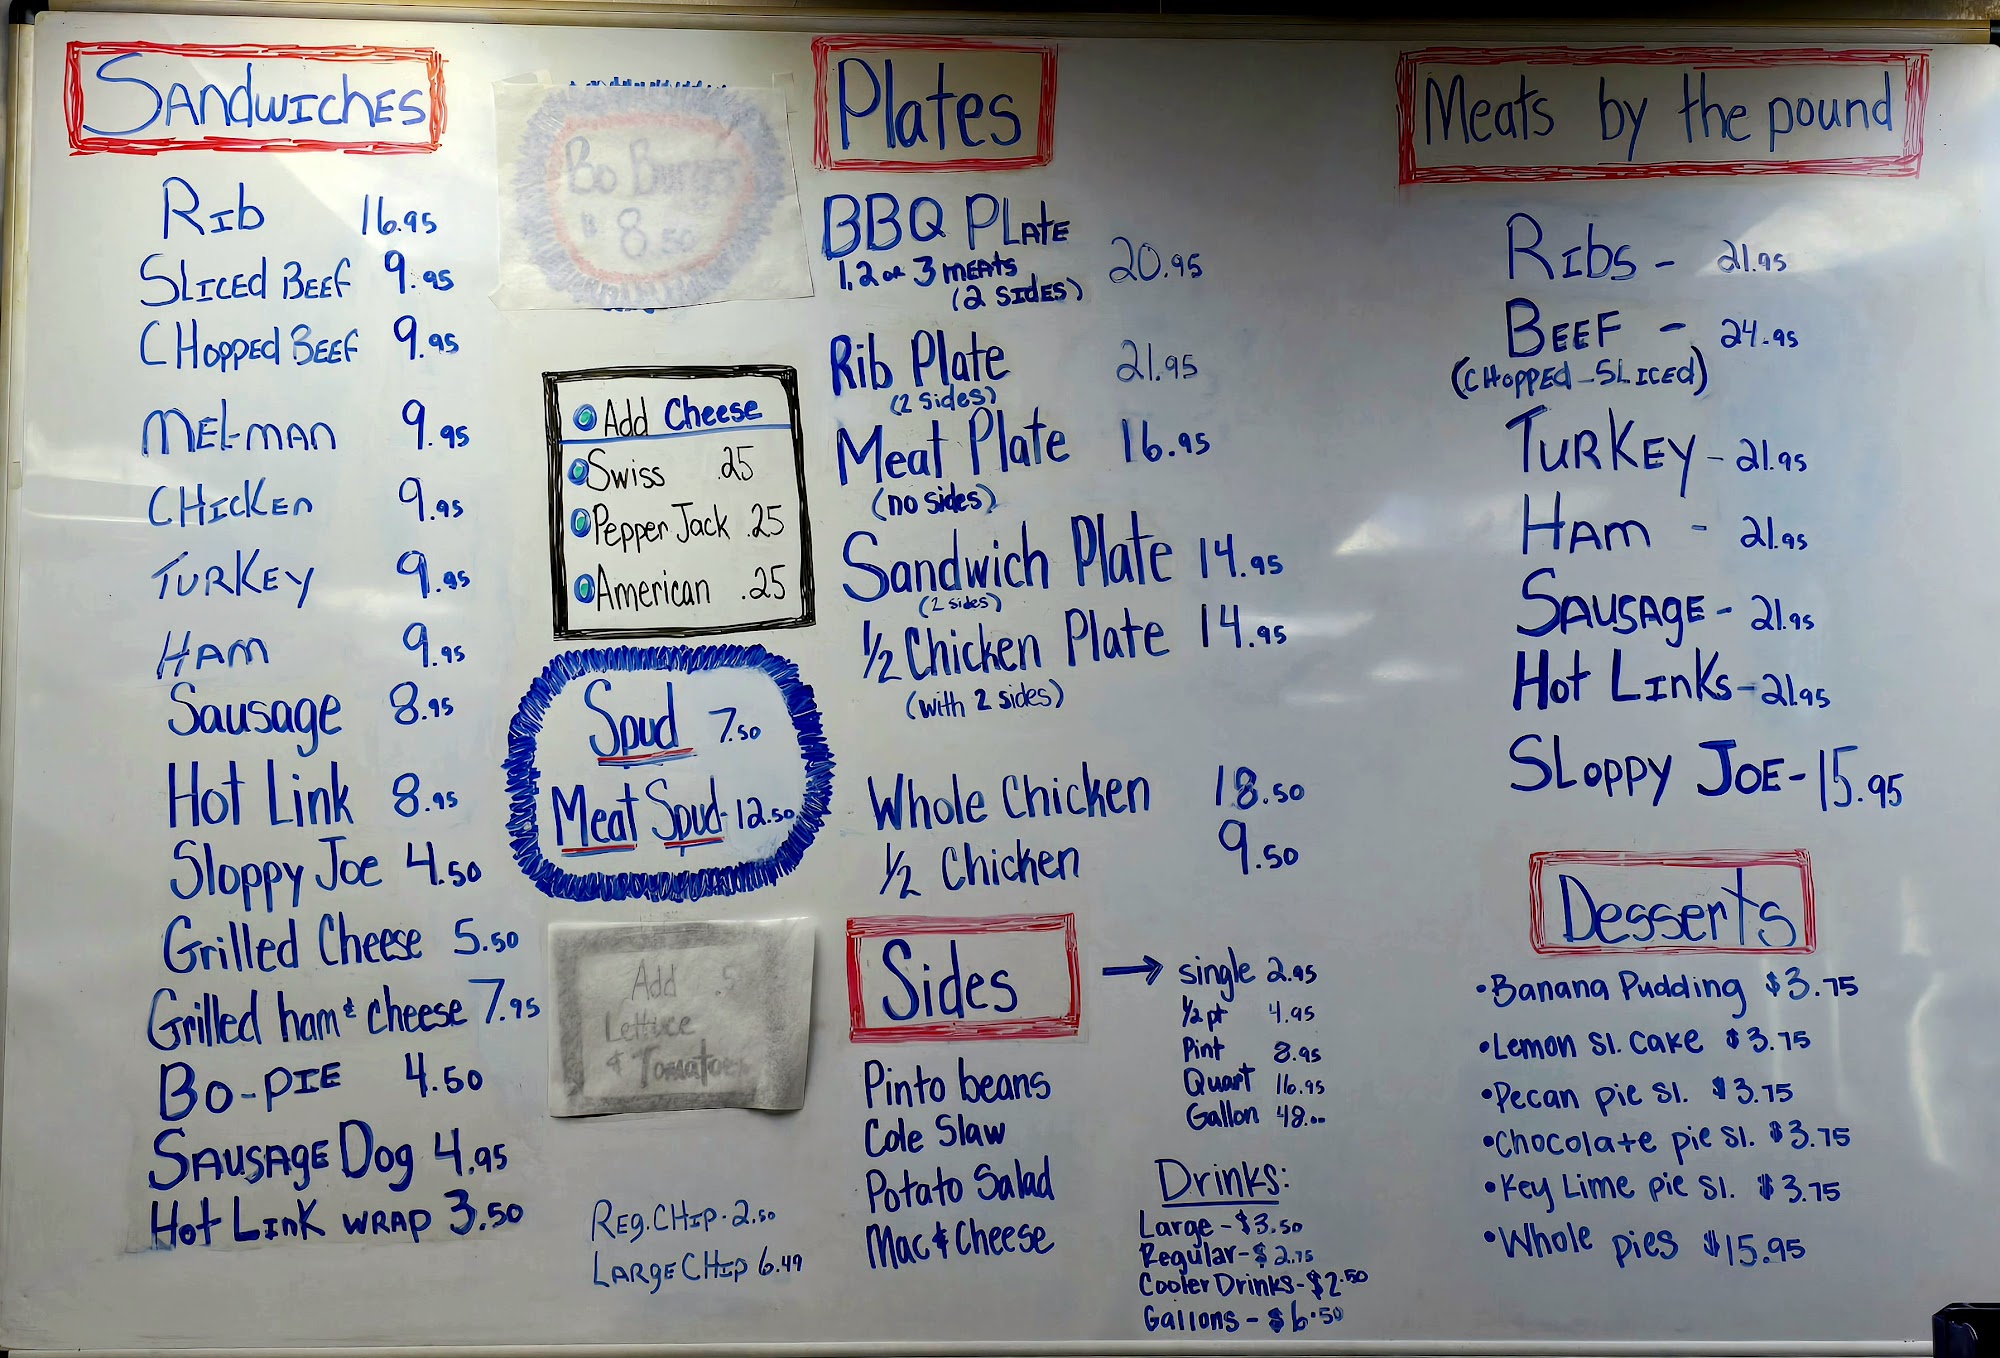 SANDWICHES
RIb 16.95
SLICED BEEF 9.95
CHOppED BEEF 9.95
MEL-MAN 9.95
CHICKEn 9.95
TURKEY 9.95
HAM 9.95
Sausage 8.95
Hot Link 8.95
Sloppy Joe 4.50
Grilled Cheese 5.50
Grilled ham & cheese 7.95
BO-PIE 4.50
SAUSAgE Dog 4.95
Hot LInK WRAP 3.50
Bo Burger
$ 8.50
Add Cheese
Swiss .25
Pepper Jack .25
American .25
Spud 7.50
Meat Spud - 12.50
Add .5
Lettuce
& Tomatoe
REg. CHIP - 2.50
LARgE CHIP 6.49
Plates
BBQ PLATE 20.95
1, 2 or 3 MEATS
(2 SIDES)
Rib Plate 21.95
(2 sides)
Meat Plate 16.95
(no sides)
Sandwich Plate 14.95
(2 sides)
1/2 Chicken Plate 14.95
(with 2 sides)
Whole Chicken 18.50
1/2 Chicken 9.50
Sides
Pinto beans
Cole Slaw
Potato Salad
Mac & Cheese
→ single 2.95
1/2 pt 4.95
Pint 8.95
Quart 16.95
Gallon 48.00
DRINKS:
Large - $3.50
Regular - $2.75
Cooler Drinks - $2.50
Gallons - $6.50
Meats by the pound
RIbS - 21.95
BEEF - 24.95
(CHOppED - SLICED)
TURKEY - 21.95
HAM - 21.95
SAUSAgE - 21.95
Hot LInKs - 21.95
SLOppy JOE - 15.95
Desserts
•Banana Pudding $3.75
•Lemon Sl. Cake $3.75
•Pecan pie Sl. $3.75
•Chocolate pie Sl. $3.75
•Key Lime pie Sl. $3.75
•Whole pies $15.95